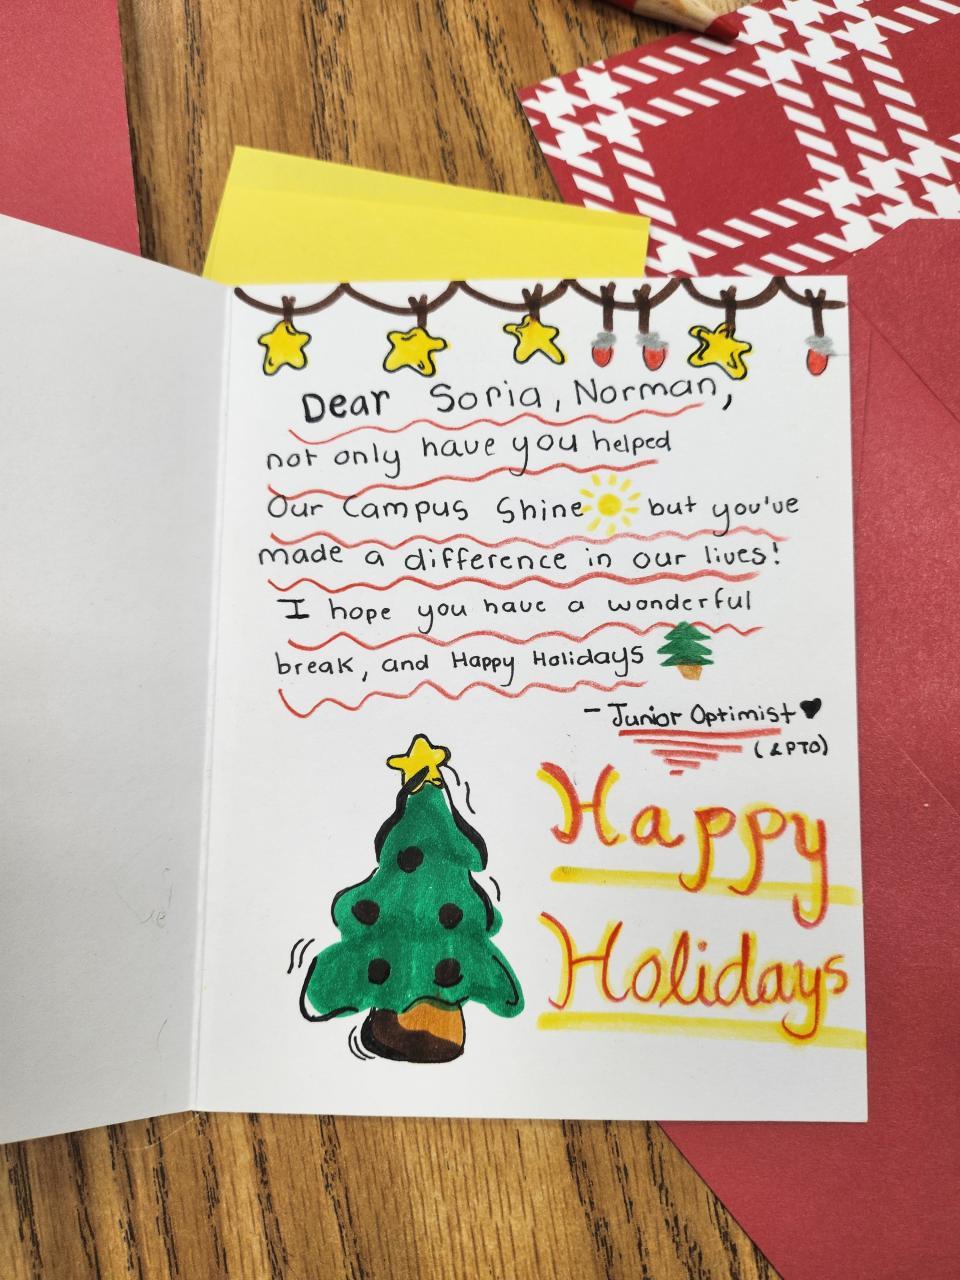 Dear Soria, Norman,
not only have you helped
Our Campus Shine but you've
made a difference in our lives!
I hope you have a wonderful
break, and Happy Holidays
- Junior Optimist
(& PTO)
Happy
Holidays